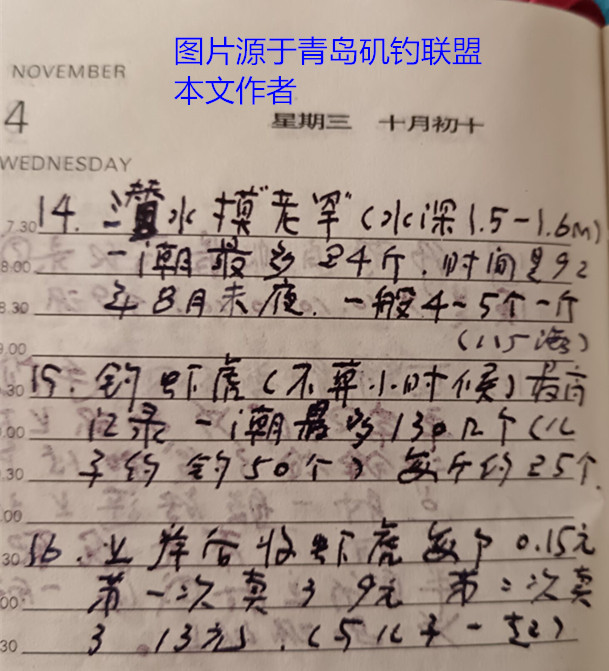 图片源于青岛矶钓联盟
本文作者
NOVEMBER
4
星期三 十月初十
WEDNESDAY
7.30 14. 潜水摸"老罕"(水深1.5-1.6m)
8.00 一潮最多24斤.时间是92
8.30 年8月末夜.一般4-5个一斤
9.00 (115海)
.30 15.钓虾虎(不算小时候)最高
.00 记录一潮最多130几个(儿
.30 子约钓50个)每斤约25个.
.00
.30 16.上岸后收虾虎每个0.15元
.00 第一次卖了9元 第二次卖
.30 了13元.(与儿子一起)